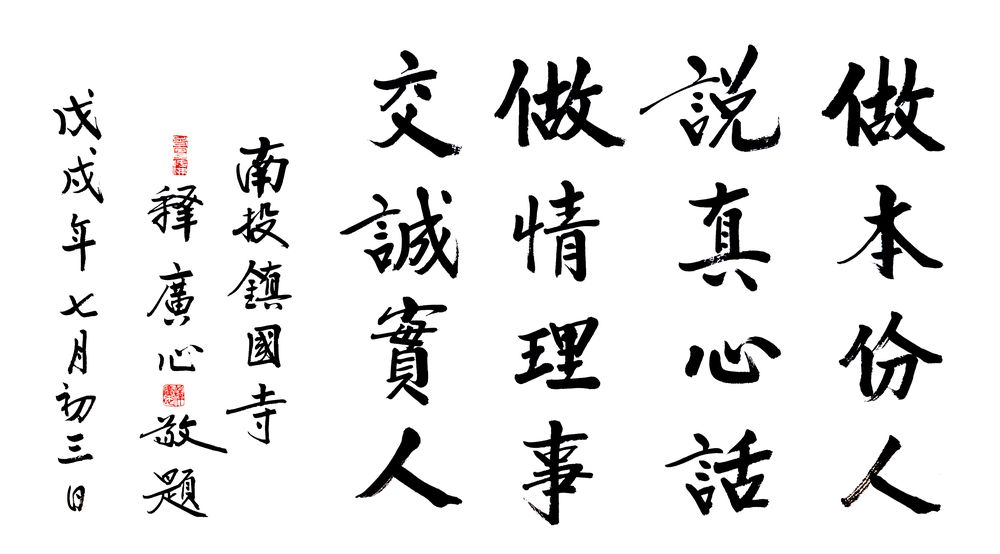 做本份人
説真心話
做情理事
交誠實人
南投鎮國寺
釋廣心敬題
戊戌年七月初三日